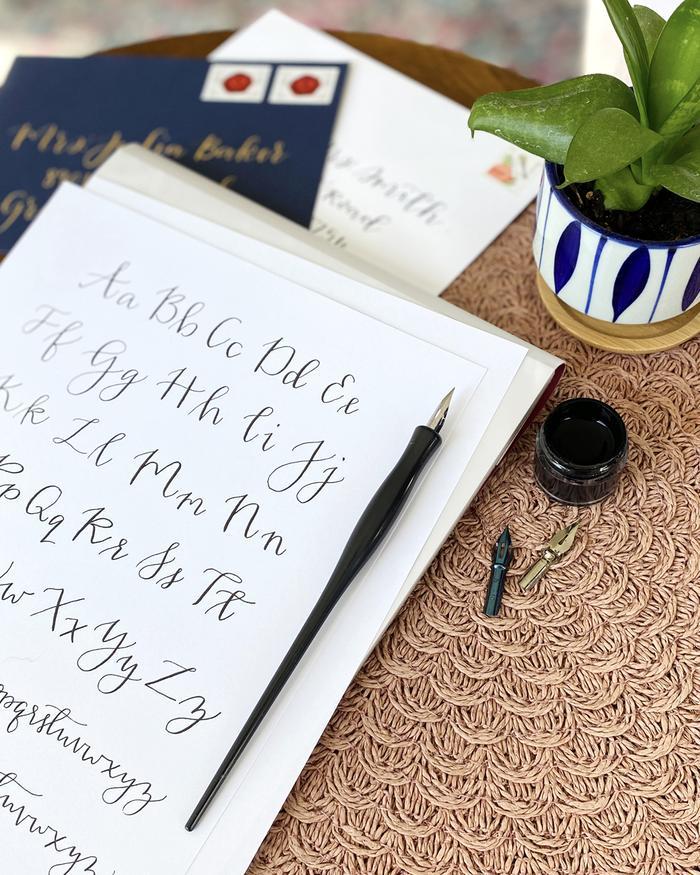 Mrs Julia Baker
Smith
Road
Aa Bb Cc Dd Ee
Ff Gg Hh Ii Jj
Kk Ll Mm Nn
Qq Rr Ss Tt
Xx Yy Zz
pqrstuvwxyz
tuvwxyz